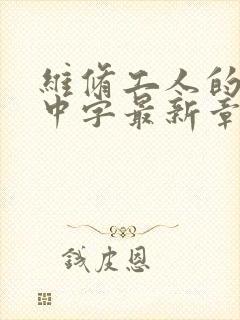 維脩工人的
中字最新章
錢皮恩